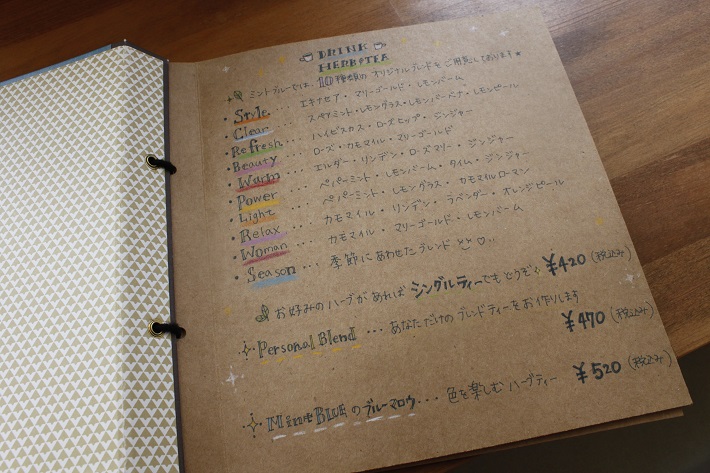 DRINK
HERB TEA
ミントブルーでは、10種類のオリジナルブレンドをご用意しております★
・Style ... エキナセア・マリーゴールド・レモンバーム
・Clear ... スペアミント・レモングラス・レモンバーベナ・レモンピール
・Refresh ... ハイビスカス・ローズヒップ・ジンジャー
・Beauty ... ローズ・カモマイル・マリーゴールド
・Warm ... エルダー・リンデン・ローズマリー・ジンジャー
・Power ... ペパーミント・レモンバーム・タイム・ジンジャー
・Light ... ペパーミント・レモングラス・カモマイルローマン
・Relax ... カモマイル・リンデン・ラベンダー・オレンジピール
・Woman ... カモマイル・マリーゴールド・レモンバーム
・Season ... 季節にあわせたブレンド ♡..
¥420(税込み)
お好みのハーブがあれば シングルティーでもどうぞ
Personal Blend ... あなただけのブレンドティーをお作りします
¥470(税込み)
Mint BLUEのブルーマロウ... 色を楽しむハーブティー ¥520(税込み)